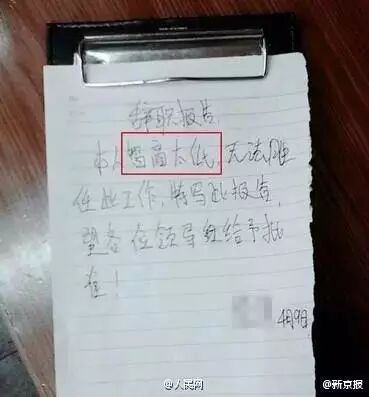 辞职报告
本人智商太低,无法胜
任此工作,特写此报告,
望各位领导能给予批
准!
4月9日
@人民网
@新京报